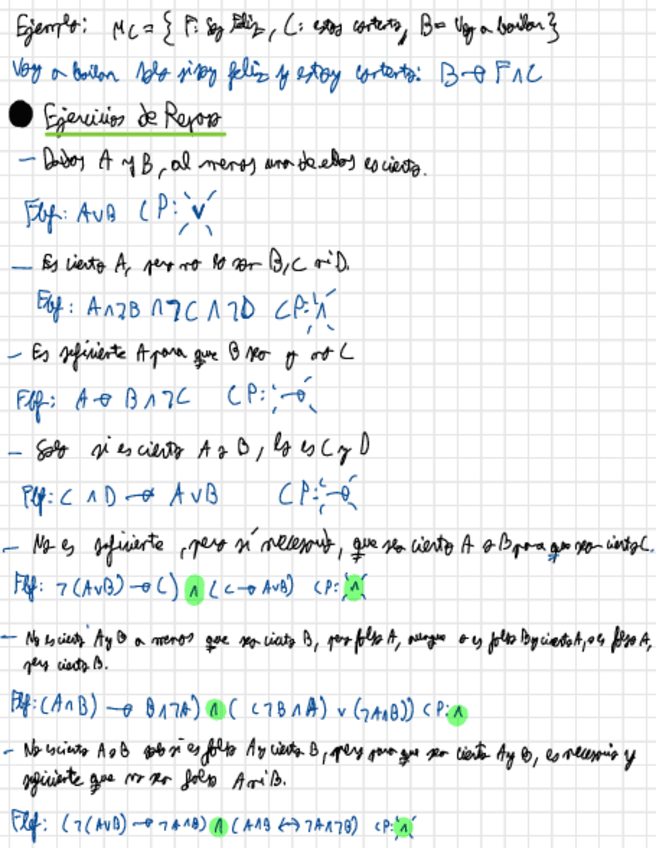 Ejemplo: MC = { F: Soy Feliz, C: estoy contento, B = Voy a bailar }
Voy a bailar solo si soy feliz y estoy contento: B → F ∧ C
Ejercicios de Repaso
– Dados A y B, al menos uno de ellos es cierto.
Fbf: A ∨ B CP: ∨
– Es cierto A, pero no lo son B, C ni D.
Fbf: A ∧ ¬B ∧ ¬C ∧ ¬D CP: ∧
– Es suficiente A para que B sea y no C
Fbf: A → B ∧ ¬C CP: →
– Solo si es cierto A o B, lo es C y D
Fbf: C ∧ D → A ∨ B CP: →
– No es suficiente, pero sí necesario, que sea cierto A o B para que sea cierto C.
Fbf: ¬(A ∨ B) → C) ∧ (C → A ∨ B) CP: ∧
– No es cierto A y B a menos que sea cierto B, pero falso A, aunque o es falso B y cierto A, o es falso A,
pero cierto B.
Fbf: (A ∧ B) → B ∧ ¬A) ∧ ( (¬B ∧ A) ∨ (¬A ∧ B)) CP: ∧
– No es cierto A o B solo si es falso A y cierto B, pero para que sea cierto A y B, es necesario y
suficiente que no sea falso A ni B.
Fbf: (¬(A ∨ B) → ¬A ∧ B) ∧ (A ∧ B ↔ ¬A ∧ ¬B) CP: ∧